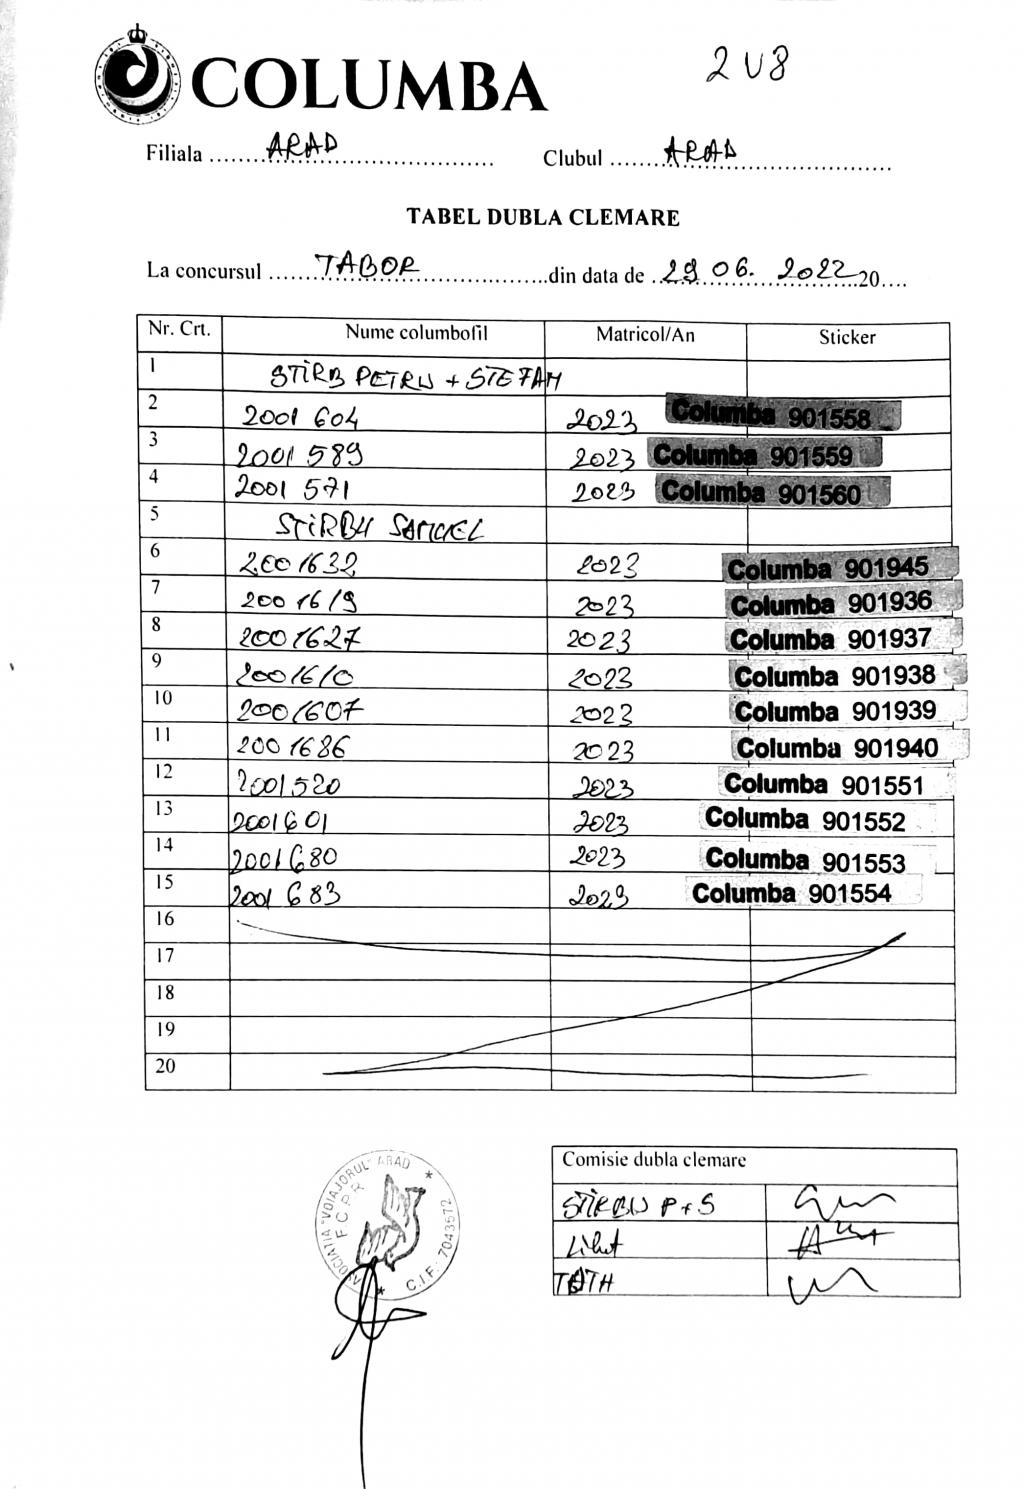 COLUMBA
2 V8
Filiala ARAD Clubul ARAD
TABEL DUBLA CLEMARE
La concursul TABOR din data de 29 06. 2022 20....
Nr. Crt. Nume columbofil Matricol/An Sticker
1 STIRB PETRU + STEFAN
2 2001 604 2023 Columba 901558
3 2001 589 2023 Columba 901559
4 2001 571 2023 Columba 901560
5 STIRBU SAMUEL
6 2001632 2023 Columba 901945
7 2001619 2023 Columba 901936
8 2001627 2023 Columba 901937
9 2001610 2023 Columba 901938
10 2001607 2023 Columba 901939
11 2001686 2023 Columba 901940
12 2001520 2023 Columba 901551
13 2001601 2023 Columba 901552
14 2001680 2023 Columba 901553
15 2001 683 2023 Columba 901554
16
17
18
19
20
ASOCIATIA "VOIAJORUL" ARAD
F C P R
C.I.F. 7043572
Comisie dubla clemare
STIRBU P + S
TOTH